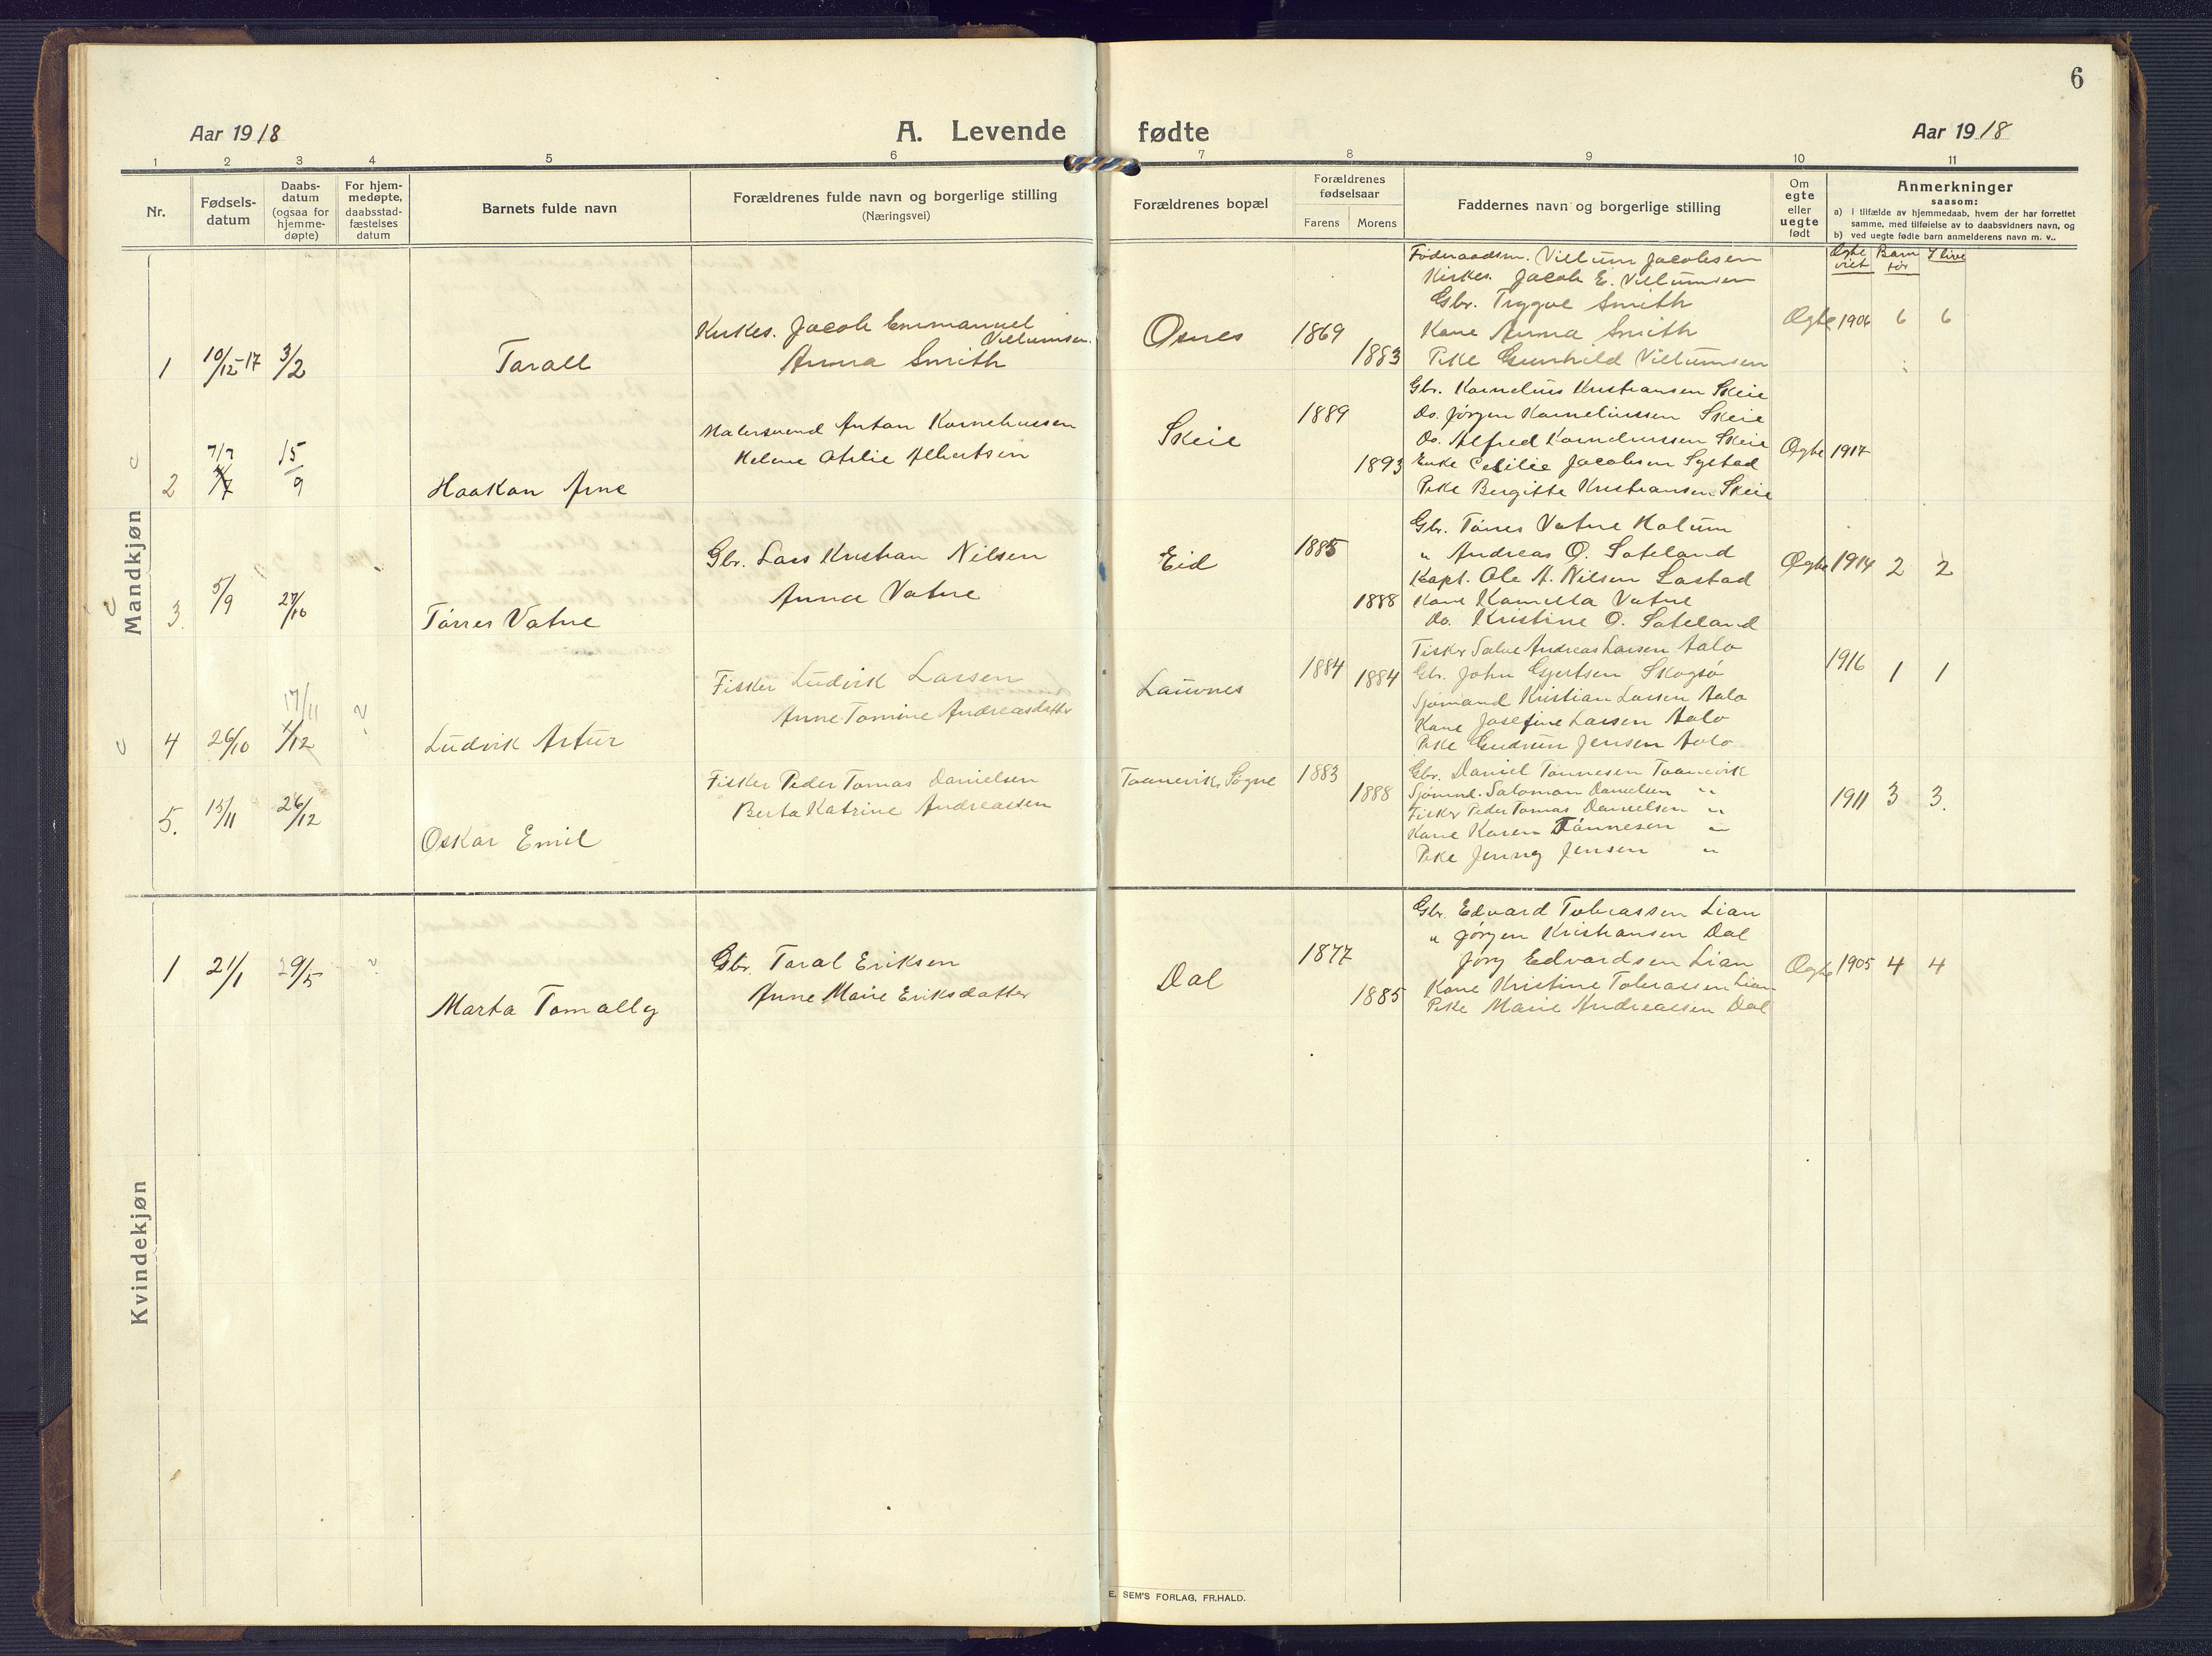 6
Aar 1918
A. Levende fødte
Aar 1918
1 2 3 4 5 6 7 8 9 10 11
Nr.
Fødsels-
datum
Daabs-
datum
(ogsaa for
hjemme-
døpte)
For hjem-
medøpte,
daabsstad-
fæstelses
datum
Barnets fulde navn
Forældrenes fulde navn og borgerlige stilling
(Næringsvei)
Forældrenes bopæl
Forældrenes
fødselsaar
Farens Morens
Faddernes navn og borgerlige stilling
Om
egte
eller
uegte
født
Anmerkninger
saasom:
a) i tilfælde av hjemmedaab, hvem der har forrettet
samme, med tilføielse av to daabsvidners navn, og
b) ved uegte fødte barn anmelderens navn m. v..
Egte
viet
Barn
før
I live
Mandkjøn
1 10/12-17 3/2
Tarall
Kirkes. Jacob Emmanuel
Villumsen
Anna Smith
Osnes
1869
1883
Føderaadsm. Villum Jacobsen
Kirkes. Jacob E. Villumsen
Gbr. Trygve Smith
Kone Anna Smith
Pike Gunhild Villumsen
Øgte 1906 6 6
2 7/7 15/9
Haakon Arne
Malersvend Anton Korneliussen
Helene Otelie Albertsen
Skeie
1889
1893
Gbr. Kornelius Kristiansen Skeie
Do. Jørgen Korneliussen Skeie
Do. Alfred Korneliussen Skeie
Enke Cesilie Jacobsen Systad
Pike Bergitte Kristiansen Skeie
Øgte 1917
3. 5/9 27/10
Tørres Vatne
Gbr. Lars Kristian Nilsen
Anna Vatne
Eid
1885
1888
Gbr. Tørres Vatne Holum
" Andreas O. Sateland
Kapt. Ole A. Nilsen Lastad
Kone Kamilla Vatne
Do. Kristine O. Sateland
Øgte 1914 2 2
4 26/10 17/11 1/12
Ludvik Artur
Fisker Ludvik Larsen
Anne Tomine Andreasdatter
Lauvnes
1884 1884
Fisker Salve Andreas Larsen Aalo
Gbr. John Gjertsen Skogsø
Sjømand Kristian Larsen Aalo
Kone Josefine Larsen Aalo
Pike Gudrun Jensen Aalo
1916 1 1
5. 15/11 26/12
Oskar Emil
Fisker Peder Tomas Danielsen
Berta Katrine Andreassen
Taanevik, Søgne
1883
1888
Gbr. Daniel Tønnesen Taanevik
Sjømnd. Salomon Danielsen "
Fisker Peder Tomas Danielsen "
Kone Karen Tønnesen "
Pike Jenny Jensen "
1911 3 3.
Kvindekjøn
1 21/1 29/5
Marta Tomally
Gbr. Taral Eriksen
Anne Marie Eriksdatter
Dal
1877
1885
Gbr. Edvard Tobiassen Lian
" Jørgen Kristiansen Dal
Jørg Edvardsen Lian
Kone Kristine Tobiassen Lian
Pike Marie Andreassen Dal
Øgte 1905 4 4
E. SEM'S FORLAG, FR.HALD.